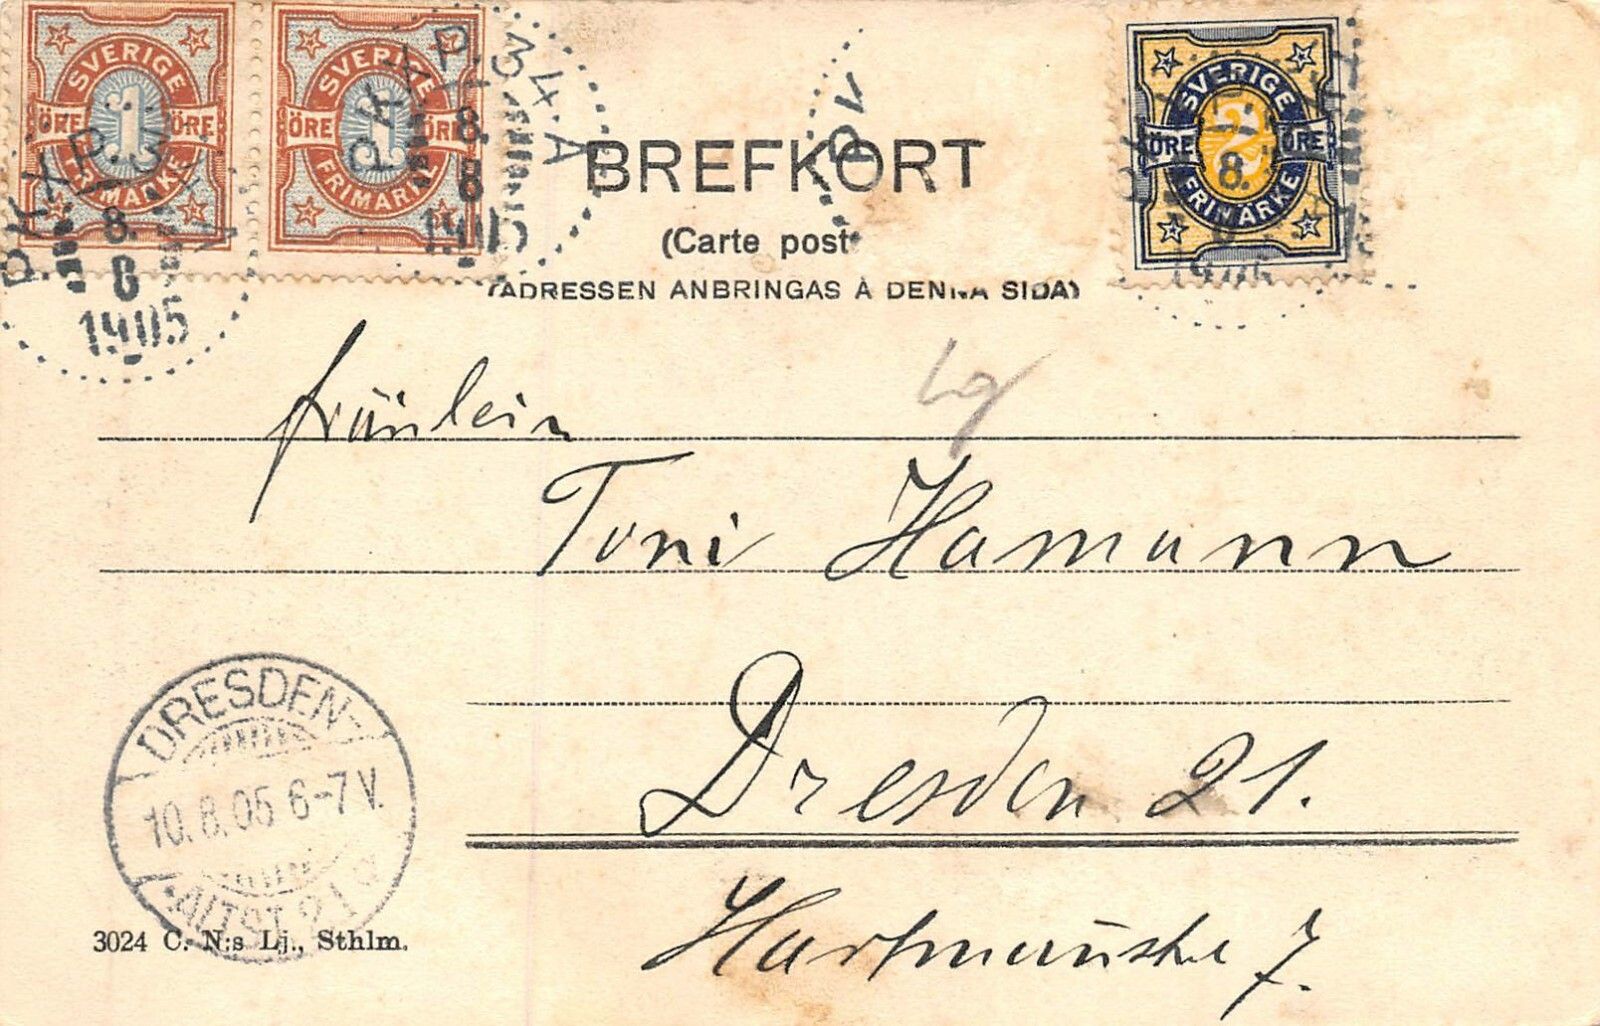 SVERIGE
ÖRE 1 ÖRE
FRIMÄRKE
SVERIGE
ÖRE 1 ÖRE
FRIMÄRKE
SVERIGE
ÖRE 2 ÖRE
FRIMÄRKE
PKXP
8.
8
1905
PKXP
34A
8.
8
1905
8.
1905
BREFKORT
(Carte post
(ADRESSEN ANBRINGAS Å DENNA SIDA)
Fräulein
Toni Hamann
Dresden 21.
7.
DRESDEN-
10.8.05 6-7V.
ALTST. 21
3024 C. N:s Lj., Sthlm.